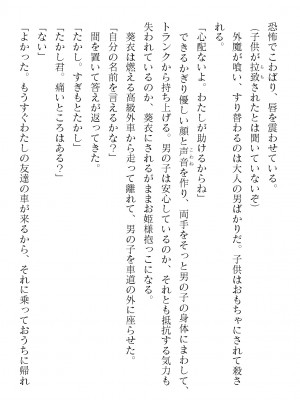 恐怖でこわばり、唇を震わせている。
（子供が拉致されたとは聞いていないぞ）
外魔が喰い、すり替わるのは大人の男ばかりだ。子供はおもちゃにされて殺さ
れる。
「心配ないよ。わたしが助けるからね」
できるかぎり優しい顔と声音を作り、両手をそっと男の子の身体にまわして、
トランクから持ち上げる。男の子は安心しているのか、それとも抵抗する気力も
失われているのか、葵衣にされるがままお姫様抱っこになる。
葵衣は燃える高級外車から走って離れて、男の子を車道の外に座らせた。
「自分の名前を言えるかな？」
間を置いて答えが返ってきた。
「たかし。すぎもとたかし」
「たかし君。痛いところはある？」
「ない」
「よかった。もうすぐわたしの友達の車が来るから、それに乗っておうちに帰れ